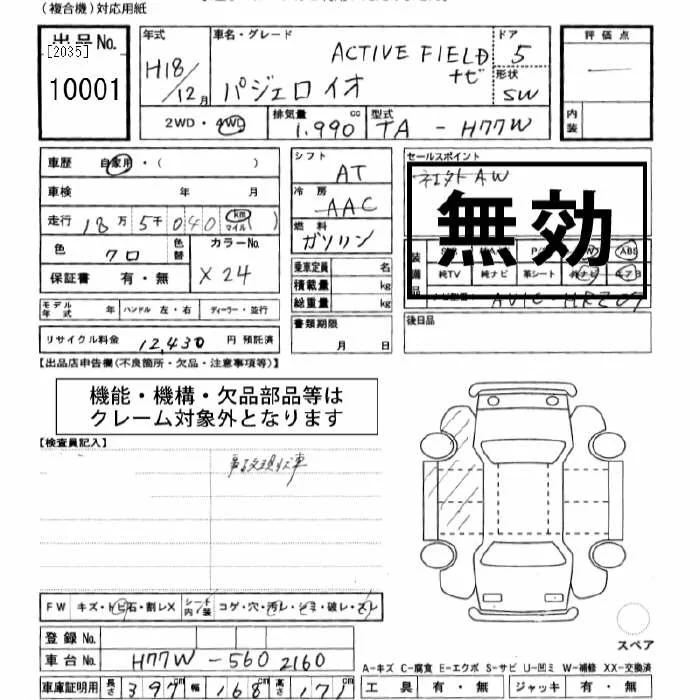 (複合機)対応用紙
出品No.
[2035]
10001
年式
H18/12月
車名・グレード
ACTIVE FIELD
パジェロイオ ナビ
ドア
5
形状
SW
評価点
内装
2WD・4WD
排気量 1.990 cc
型式 TA-H77W
車歴 自家用・( )
車検 年 月
走行 18万5千040 km マイル ( )
色 クロ 色替
カラーNo.
X24
保証書 有・無
モデル年式 年 ハンドル 左・右 ディーラー・並行
リサイクル料金 12,430 円 預託済
シフト
AT
冷房
AAC
燃料
ガソリン
乗車定員 名
積載量 kg
総重量 kg
書類期限
月 日
セールスポイント
社外AW
無効
装備品
ABS
純TV 純ナビ 革シート
AVIC-HRZ09
後日品
【出品店申告欄(不良箇所・欠品・注意事項等)】
機能・機構・欠品部品等は
クレーム対象外となります
【検査員記入】
事故現状車
FW キズ・トビ石・割レX シート内装 コゲ・穴・汚レ・シミ・破レ・スレ
登録No.
車台No. H77W-5602160
車庫証明用 長さ 397 幅 168 高さ 171
スペア
A-キズ C-腐食 E-エクボ S-サビ U-凹ミ W-補修 XX-交換済
工具 有・無 ジャッキ 有・無